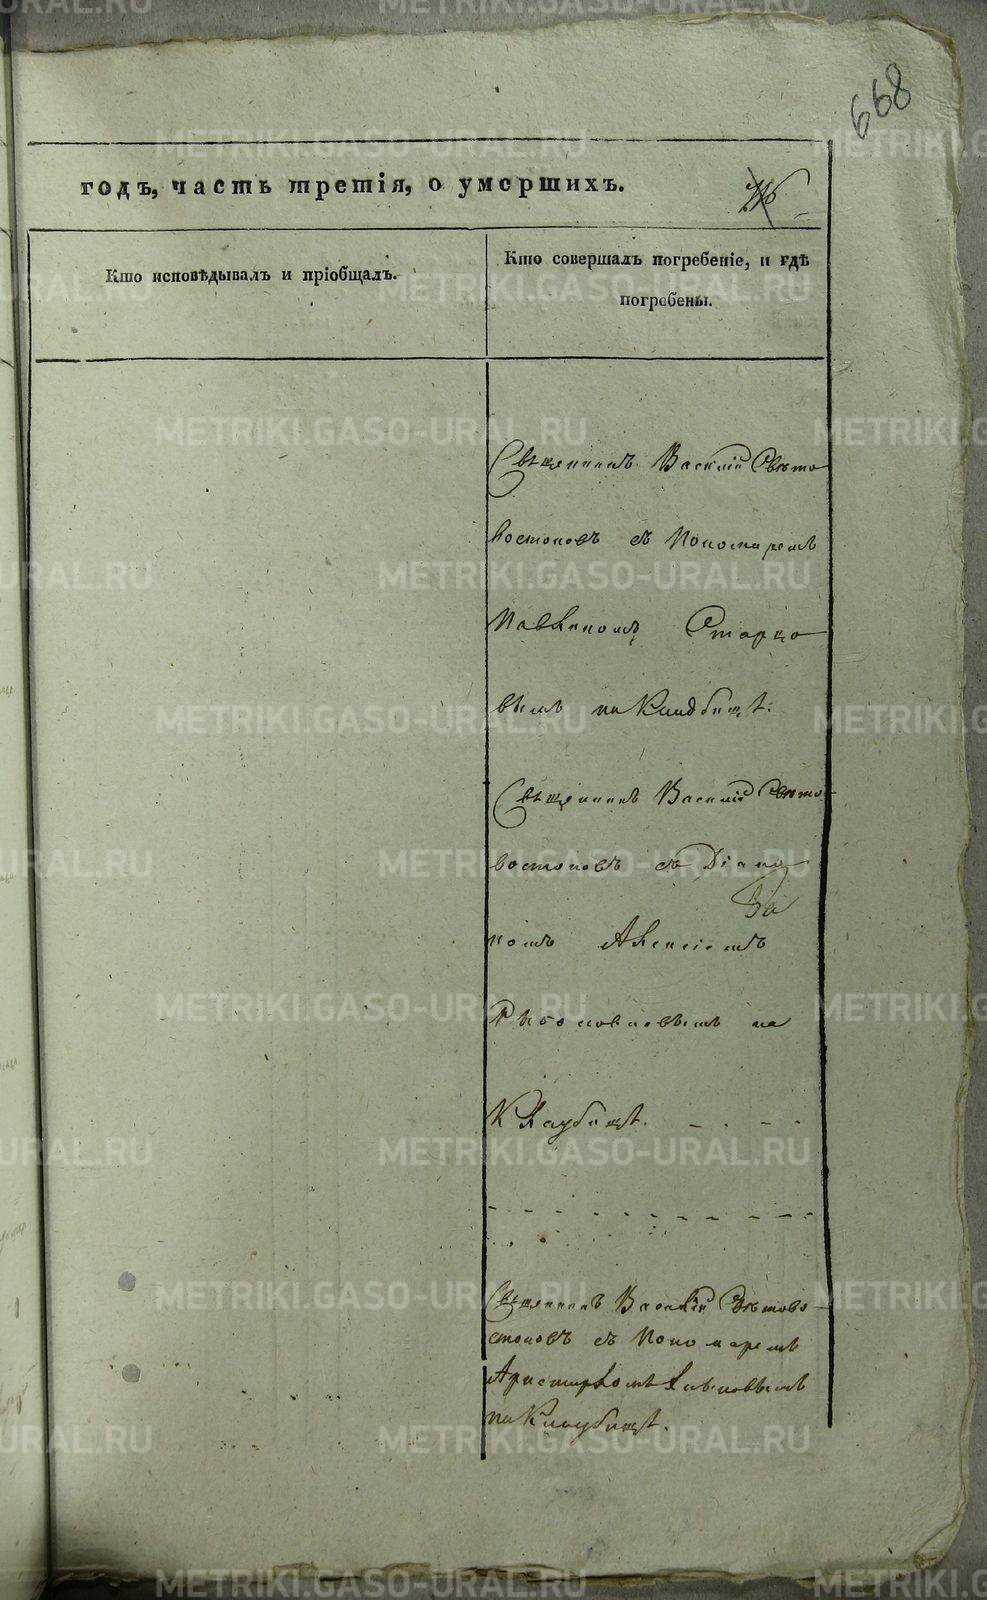 668
годъ, часть третія, о умершихъ.
Кто исповѣдывалъ и пріобщалъ.
Кто совершалъ погребеніе, и гдѣ
погребены.
Священникъ Василій Свѣто
востоковъ съ Пономаремъ
Старцо
вымъ на Кладбищѣ.
Священникъ Василій Свѣто
востоковъ съ Діако
номъ Алексіемъ
на
Кладбищѣ.
Священникъ Василій Свѣтово
стоковъ съ Пономаремъ
Аристархомъ
на Кладбищѣ.
METRIKI.GASO-URAL.RU